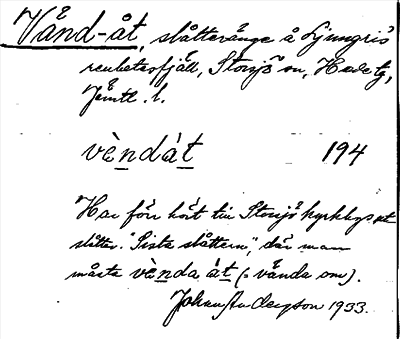 Vånd-åt, slåtteränge å Ljungris
renbetesfjäll, Storsjö sn, Hede tg,
Jämtl. l.
vèndát 194
Har förr hört till Storsjö kyrkbys ut
slåtter. "Sista slåttern", där man
måste vènda át (= vända om).
Johan Andersson 1933.